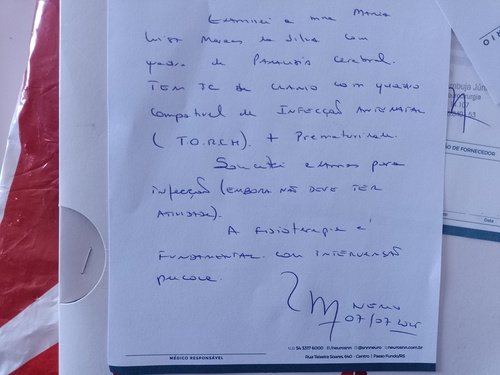 Examinei a mna Maria
Luiza Moraes da Silva com
quadro de Paralisia Cerebral.
Tem TC de cranio com quadro
compativel de Infecção Antenatal
(T.O.R.C.H). + Prematuridade.
Solicitei exames para
infecção (embora não deve ter
atividade).
A Fisioterapia é
Fundamental com intervenção
precoce.
Neuro
07/07
MÉDICO RESPONSÁVEL
54 3317 6000 @neuroann
Rua Teixeira Soares, 640 - Centro | Passo Fundo/RS
ÃO DE FORNECEDOR